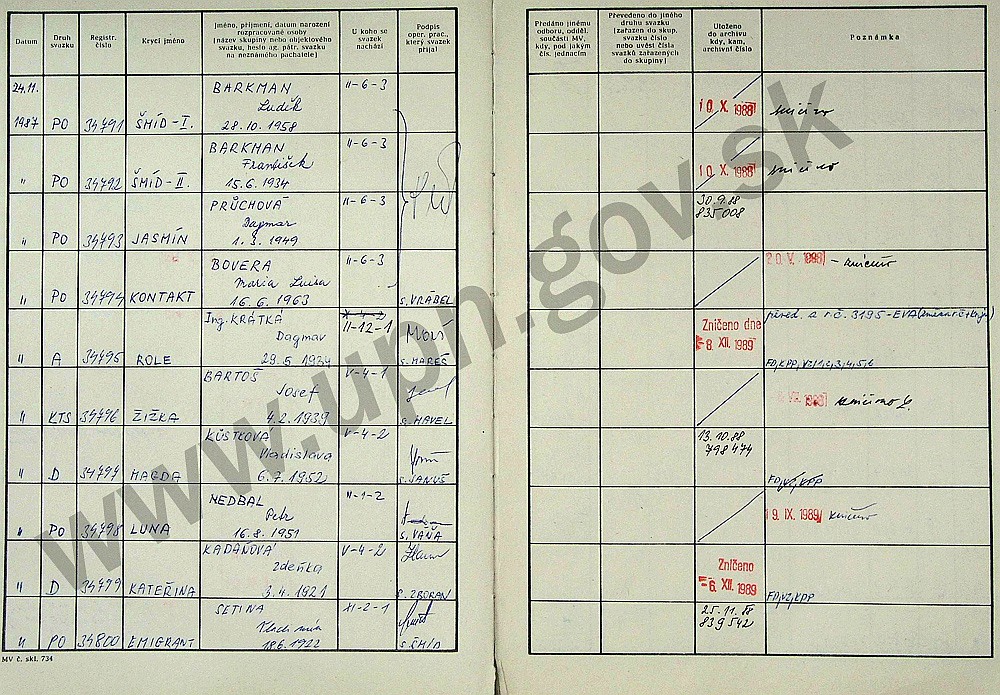 Datum
Druh svazku
Registr. číslo
Krycí jméno
Jméno, příjmení, datum narození
rozpracované osoby
[název skupiny nebo objektového
svazku, heslo ag. pátr. svazku
na neznámého pachatele]
U koho se svazek nachází
Podpis oper. prac., který svazek přijal
Předáno jinému
odboru, odděl.
součásti MV,
kdy, pod jakým
čís. jednacím
Převedeno do jiného
druhu svazku
[zařazen do skup.
svazku číslo
nebo uvést čísla
svazků zařazených
do skupiny]
Uloženo
do archivu
kdy, kam,
archivní číslo
Poznámka
24.11. BARKMAN II-6-3
Luděk
1987 PO 34791 ŠMÍD-I. 28.10.1958 10.X.1988 zničeno
BARKMAN II-6-3
František
" PO 34792 ŠMÍD-II. 15.6.1934 10.X.1988 zničeno
PRŮCHOVÁ II-6-3 30.9.88
Dagmar 835008
" PO 34793 JASMÍN 1.3.1949
BOVERA II-6-3 20.V.1988 - zničeno
Maria Luisa
" PO 34794 KONTAKT 16.6.1963 s.VRÁBEL
Ing. KRÁTKÁ II-12-1 převed. a r.č. 3195-EVA
Dagmar Zničeno dne
" A 34795 ROLE 29.5.1934 s.MAREŠ -8.XII.1989
BARTOŠ V-4-1
Josef zničeno
" KTS 34796 ŽIŽKA 4.2.1939 s.HAVEL
KŮSTKOVÁ V-4-2 13.10.88
Vladislava 798474
" D 34797 MAGDA 6.7.1952 s.JANUŠ
NEDBAL II-1-2 19.IX.1989 zničeno
Petr
" PO 34798 LUNA 16.8.1951 s.VÁŇA
KADAŇOVÁ V-4-2 Zničeno
Zdeňka -6.XII.1989
" D 34799 KATEŘINA 3.4.1921 s.ZBORAN FD,VZ,KPP
SETINA XI-2-1 25.11.88
Vladimír 839542
" PO 34800 EMIGRANT 18.6.1922 s.ŠMÍD
MV č. skl. 734
www.upn.gov.sk